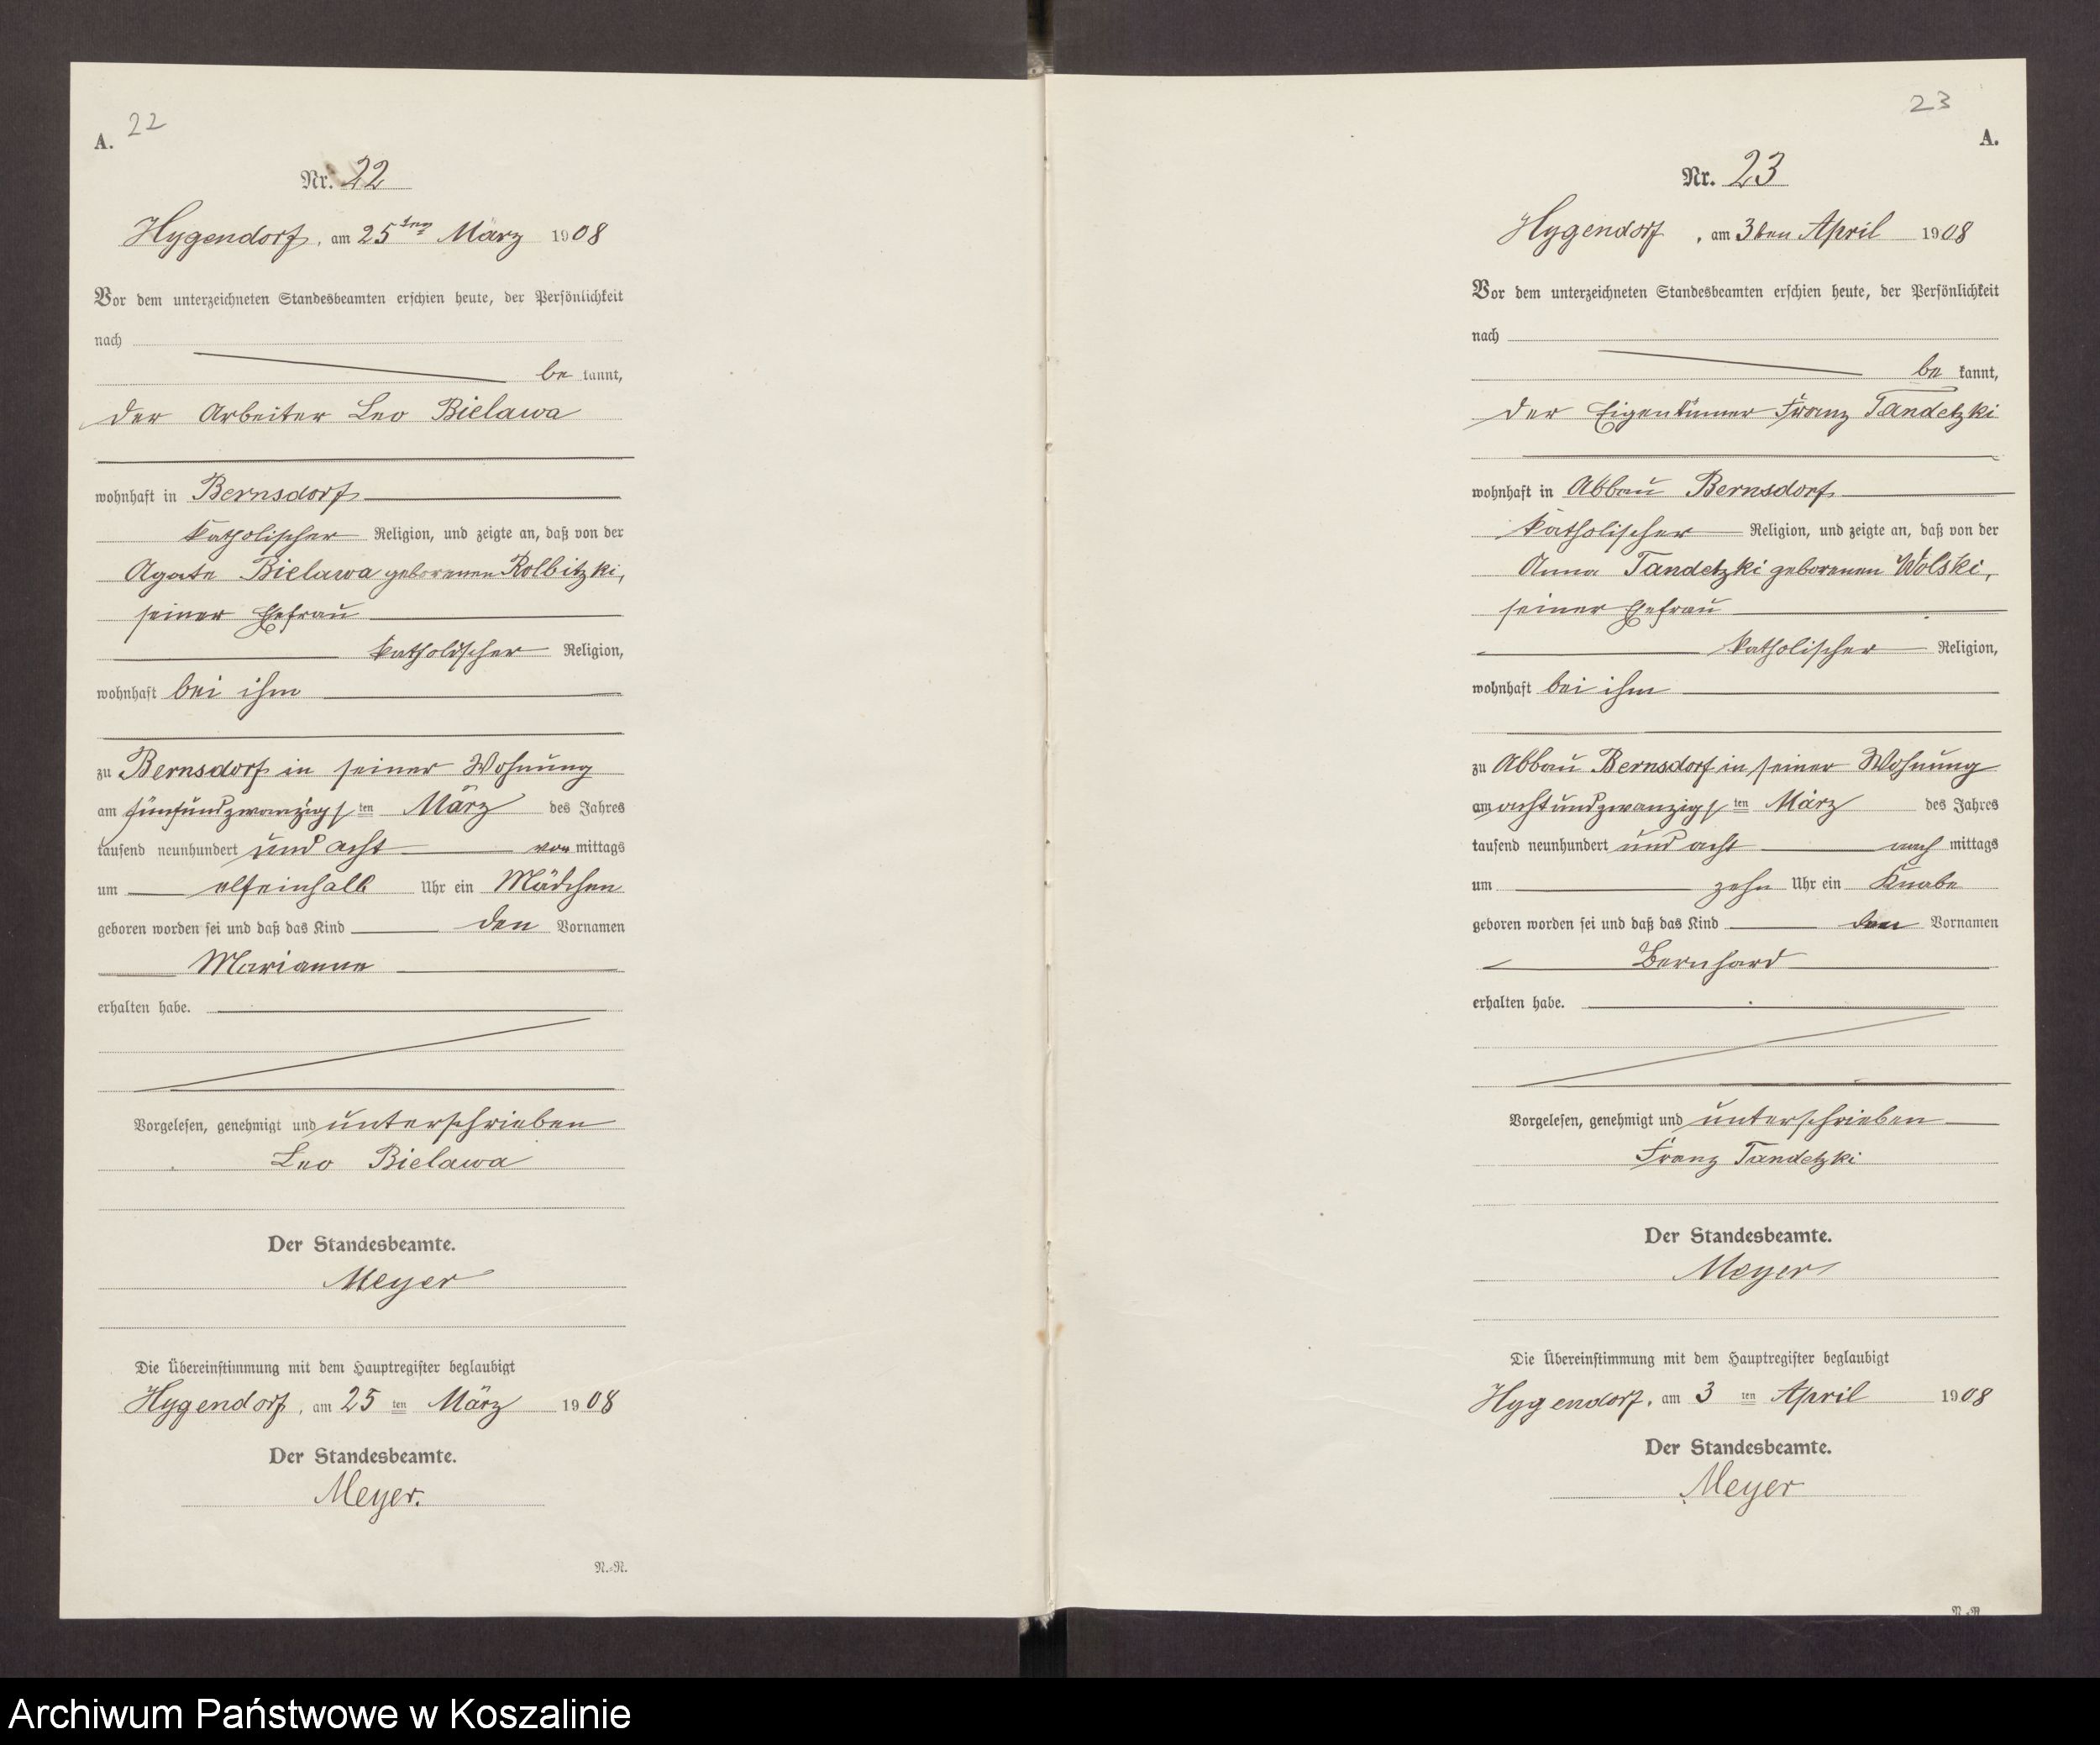 22
A.
Nr. 22
Hygendorf, am 25ten März 1908
Vor dem unterzeichneten Standesbeamten erschien heute, der Persönlichkeit
nach
be kannt,
der Arbeiter Leo Bielawa
wohnhaft in Bernsdorf
katholischer Religion, und zeigte an, daß von der
Agate Bielawa geborenen Rolbitzki,
seiner Ehefrau
katholischer Religion,
wohnhaft bei ihm
zu Bernsdorf in seiner Wohnung
am fünfundzwanzigsten März des Jahres
tausend neunhundert und acht vormittags
um elfeinhalb Uhr ein Mädchen
geboren worden sei und daß das Kind den Vornamen
Marianne
erhalten habe.
Vorgelesen, genehmigt und unterschrieben
Leo Bielawa
Der Standesbeamte.
Meyer
Die Übereinstimmung mit dem Hauptregister beglaubigt
Hygendorf, am 25 ten März 1908
Der Standesbeamte.
Meyer.
N.-N.
23
A.
Nr. 23
Hygendorf, am 3ten April 1908
Vor dem unterzeichneten Standesbeamten erschien heute, der Persönlichkeit
nach
be kannt,
der Eigentümer Franz Tandetzki
wohnhaft in Abbau Bernsdorf
katholischer Religion, und zeigte an, daß von der
Anna Tandetzki geborenen Wolski,
seiner Ehefrau
katholischer Religion,
wohnhaft bei ihm
zu Abbau Bernsdorf in seiner Wohnung
am achtundzwanzigsten März des Jahres
tausend neunhundert und acht nachmittags
um zehn Uhr ein Knabe
geboren worden sei und daß das Kind den Vornamen
Bernhard
erhalten habe.
Vorgelesen, genehmigt und unterschrieben
Franz Tandetzki
Der Standesbeamte.
Meyer
Die Übereinstimmung mit dem Hauptregister beglaubigt
Hygendorf, am 3 ten April 1908
Der Standesbeamte.
Meyer
Archiwum Państwowe w Koszalinie